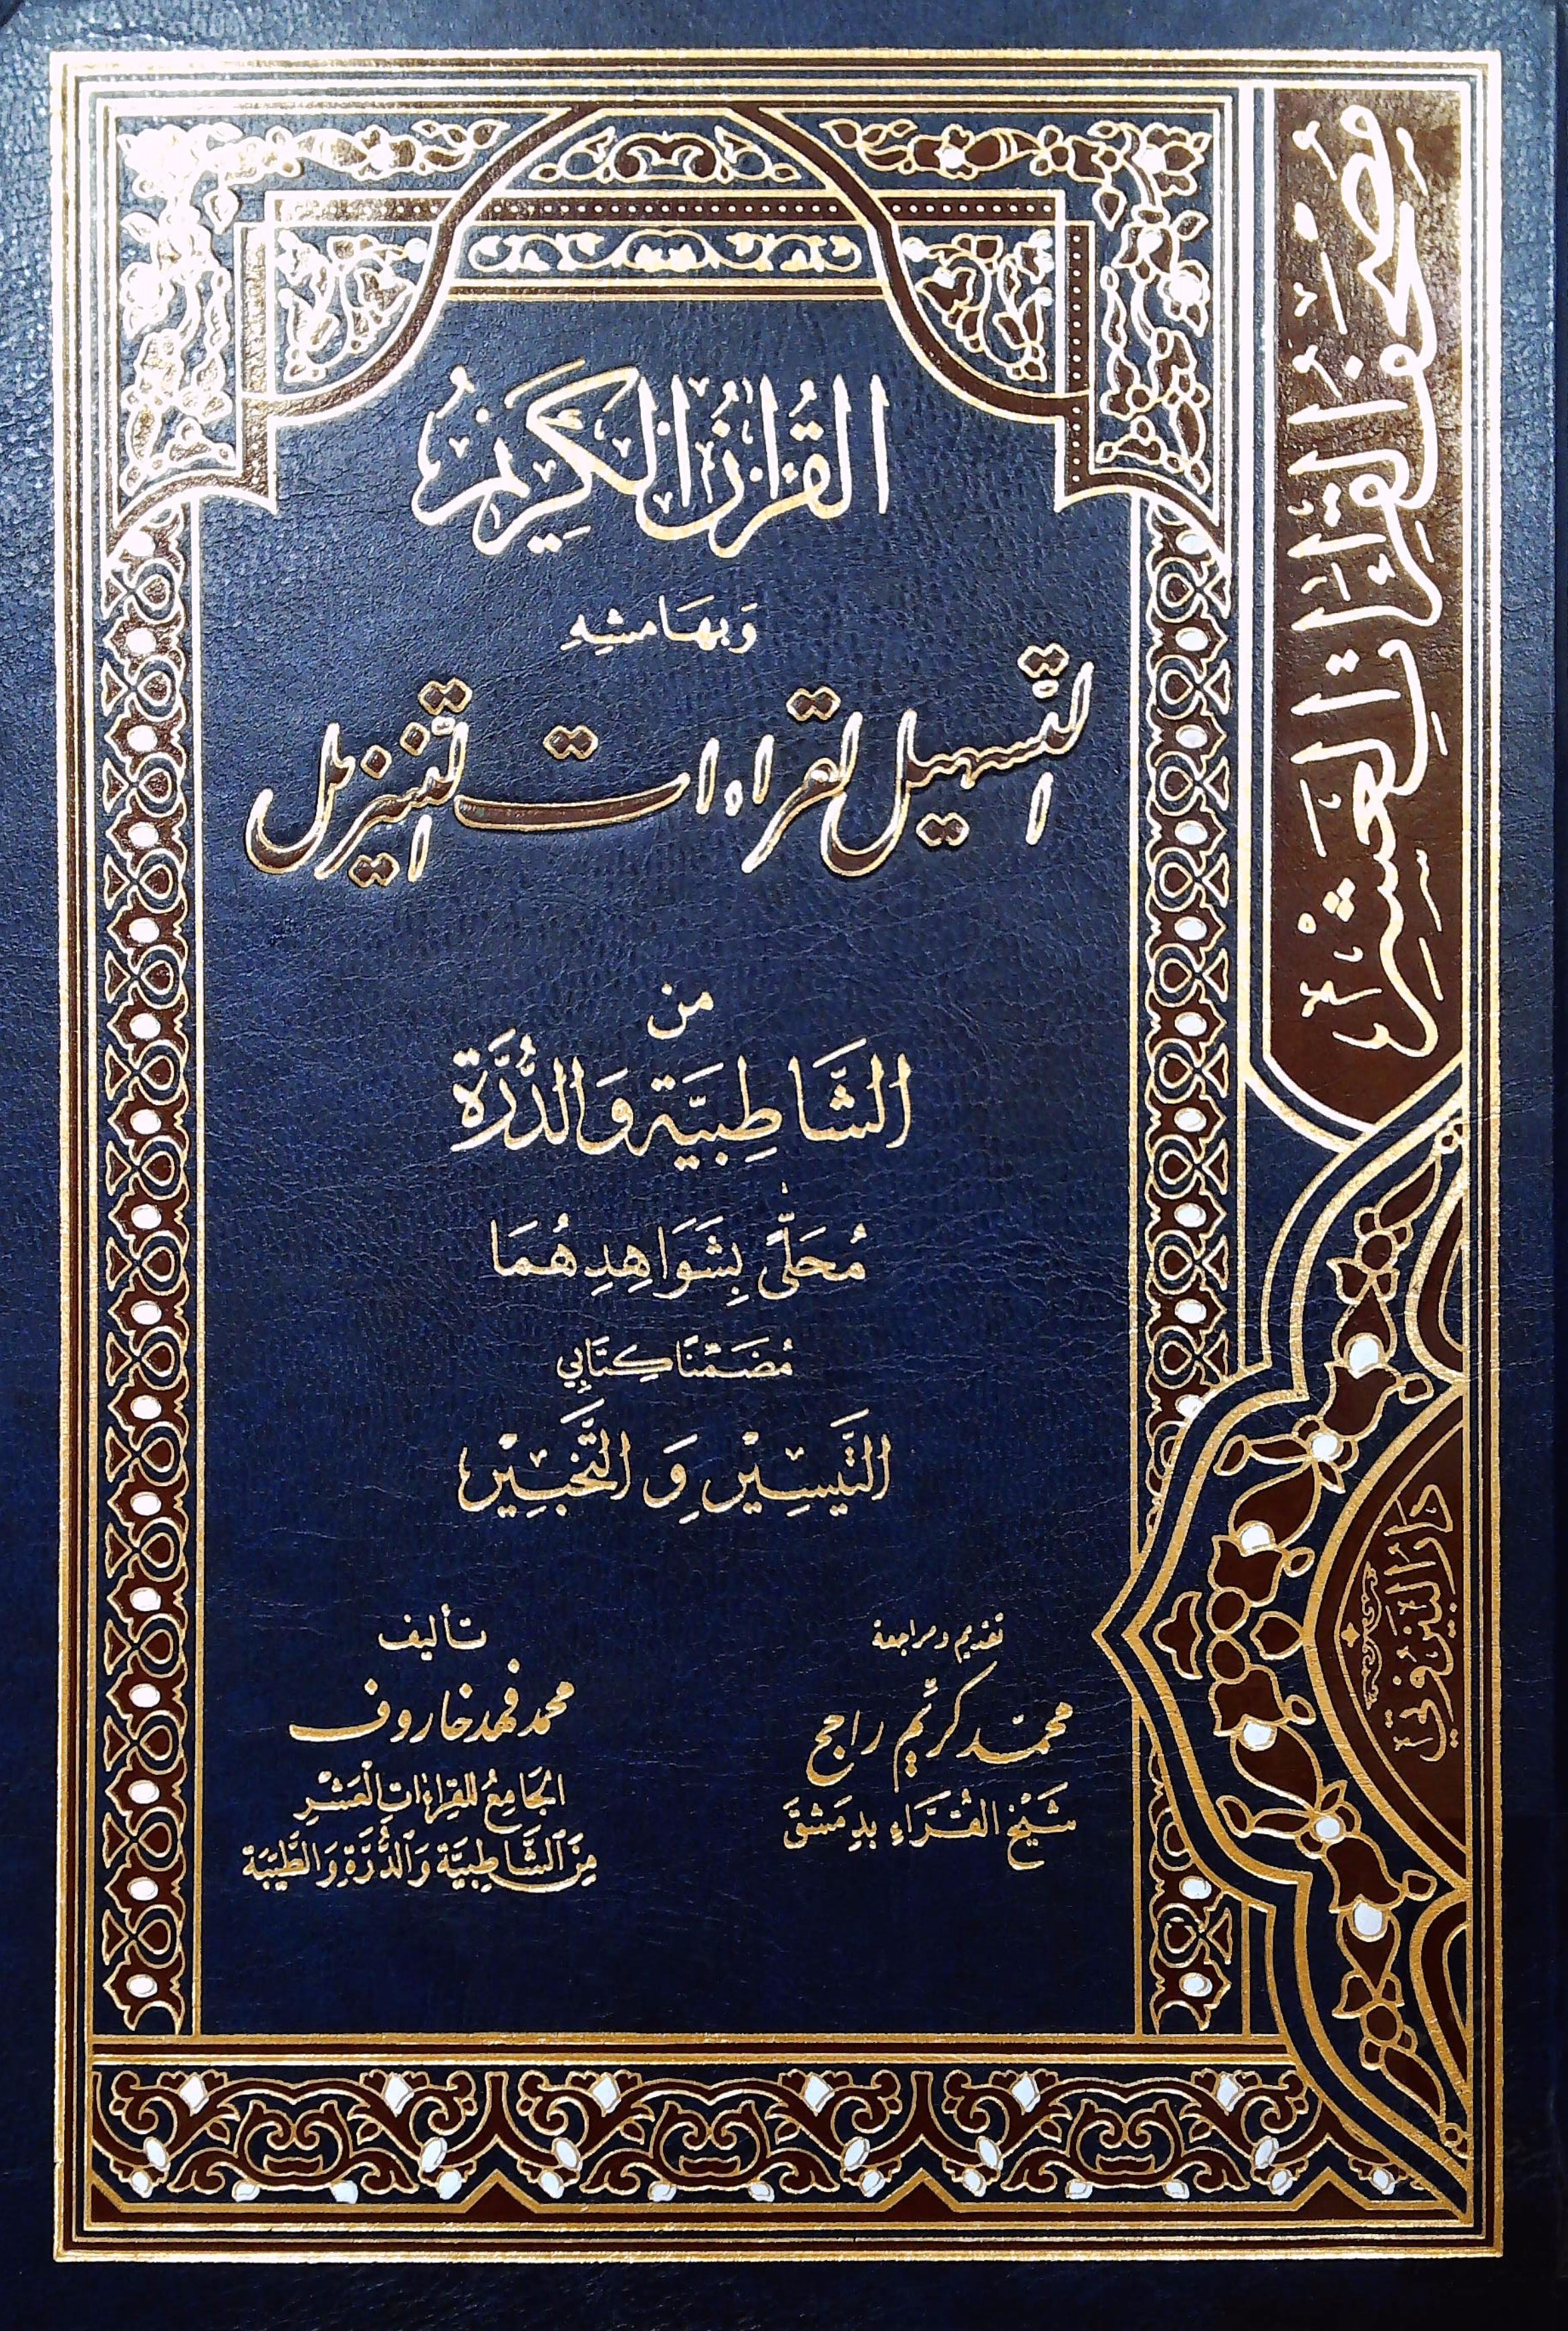 القرآن الكريم
وَبهَامشِهِ
التسهيل لقراءات التنزيل
من
الشَّاطِبيَّة وَالدُّرَّة
مُحَلّىً بِشَوَاهِدِهُمَا
مُضَمَّنًا كِتَابَي
التَّيسِيْر وَ التَّحْبَيِير
تقديم ومراجعة
محمّد كريّم راجح
شَيْخ القُرَّاءِ بِدِمَشق
تأليف
محمد فهد خاروف
الجَامِعُ للقِرَاءَاتِ الْعَشْرِ
مِنَ الشَّاطِبِيَّة وَالدُّرَّة وَالطَّيّبَة
مُصْحَفُ القِرَاءَاتِ العَشْرِ
دَارُ البَيْرُوتي